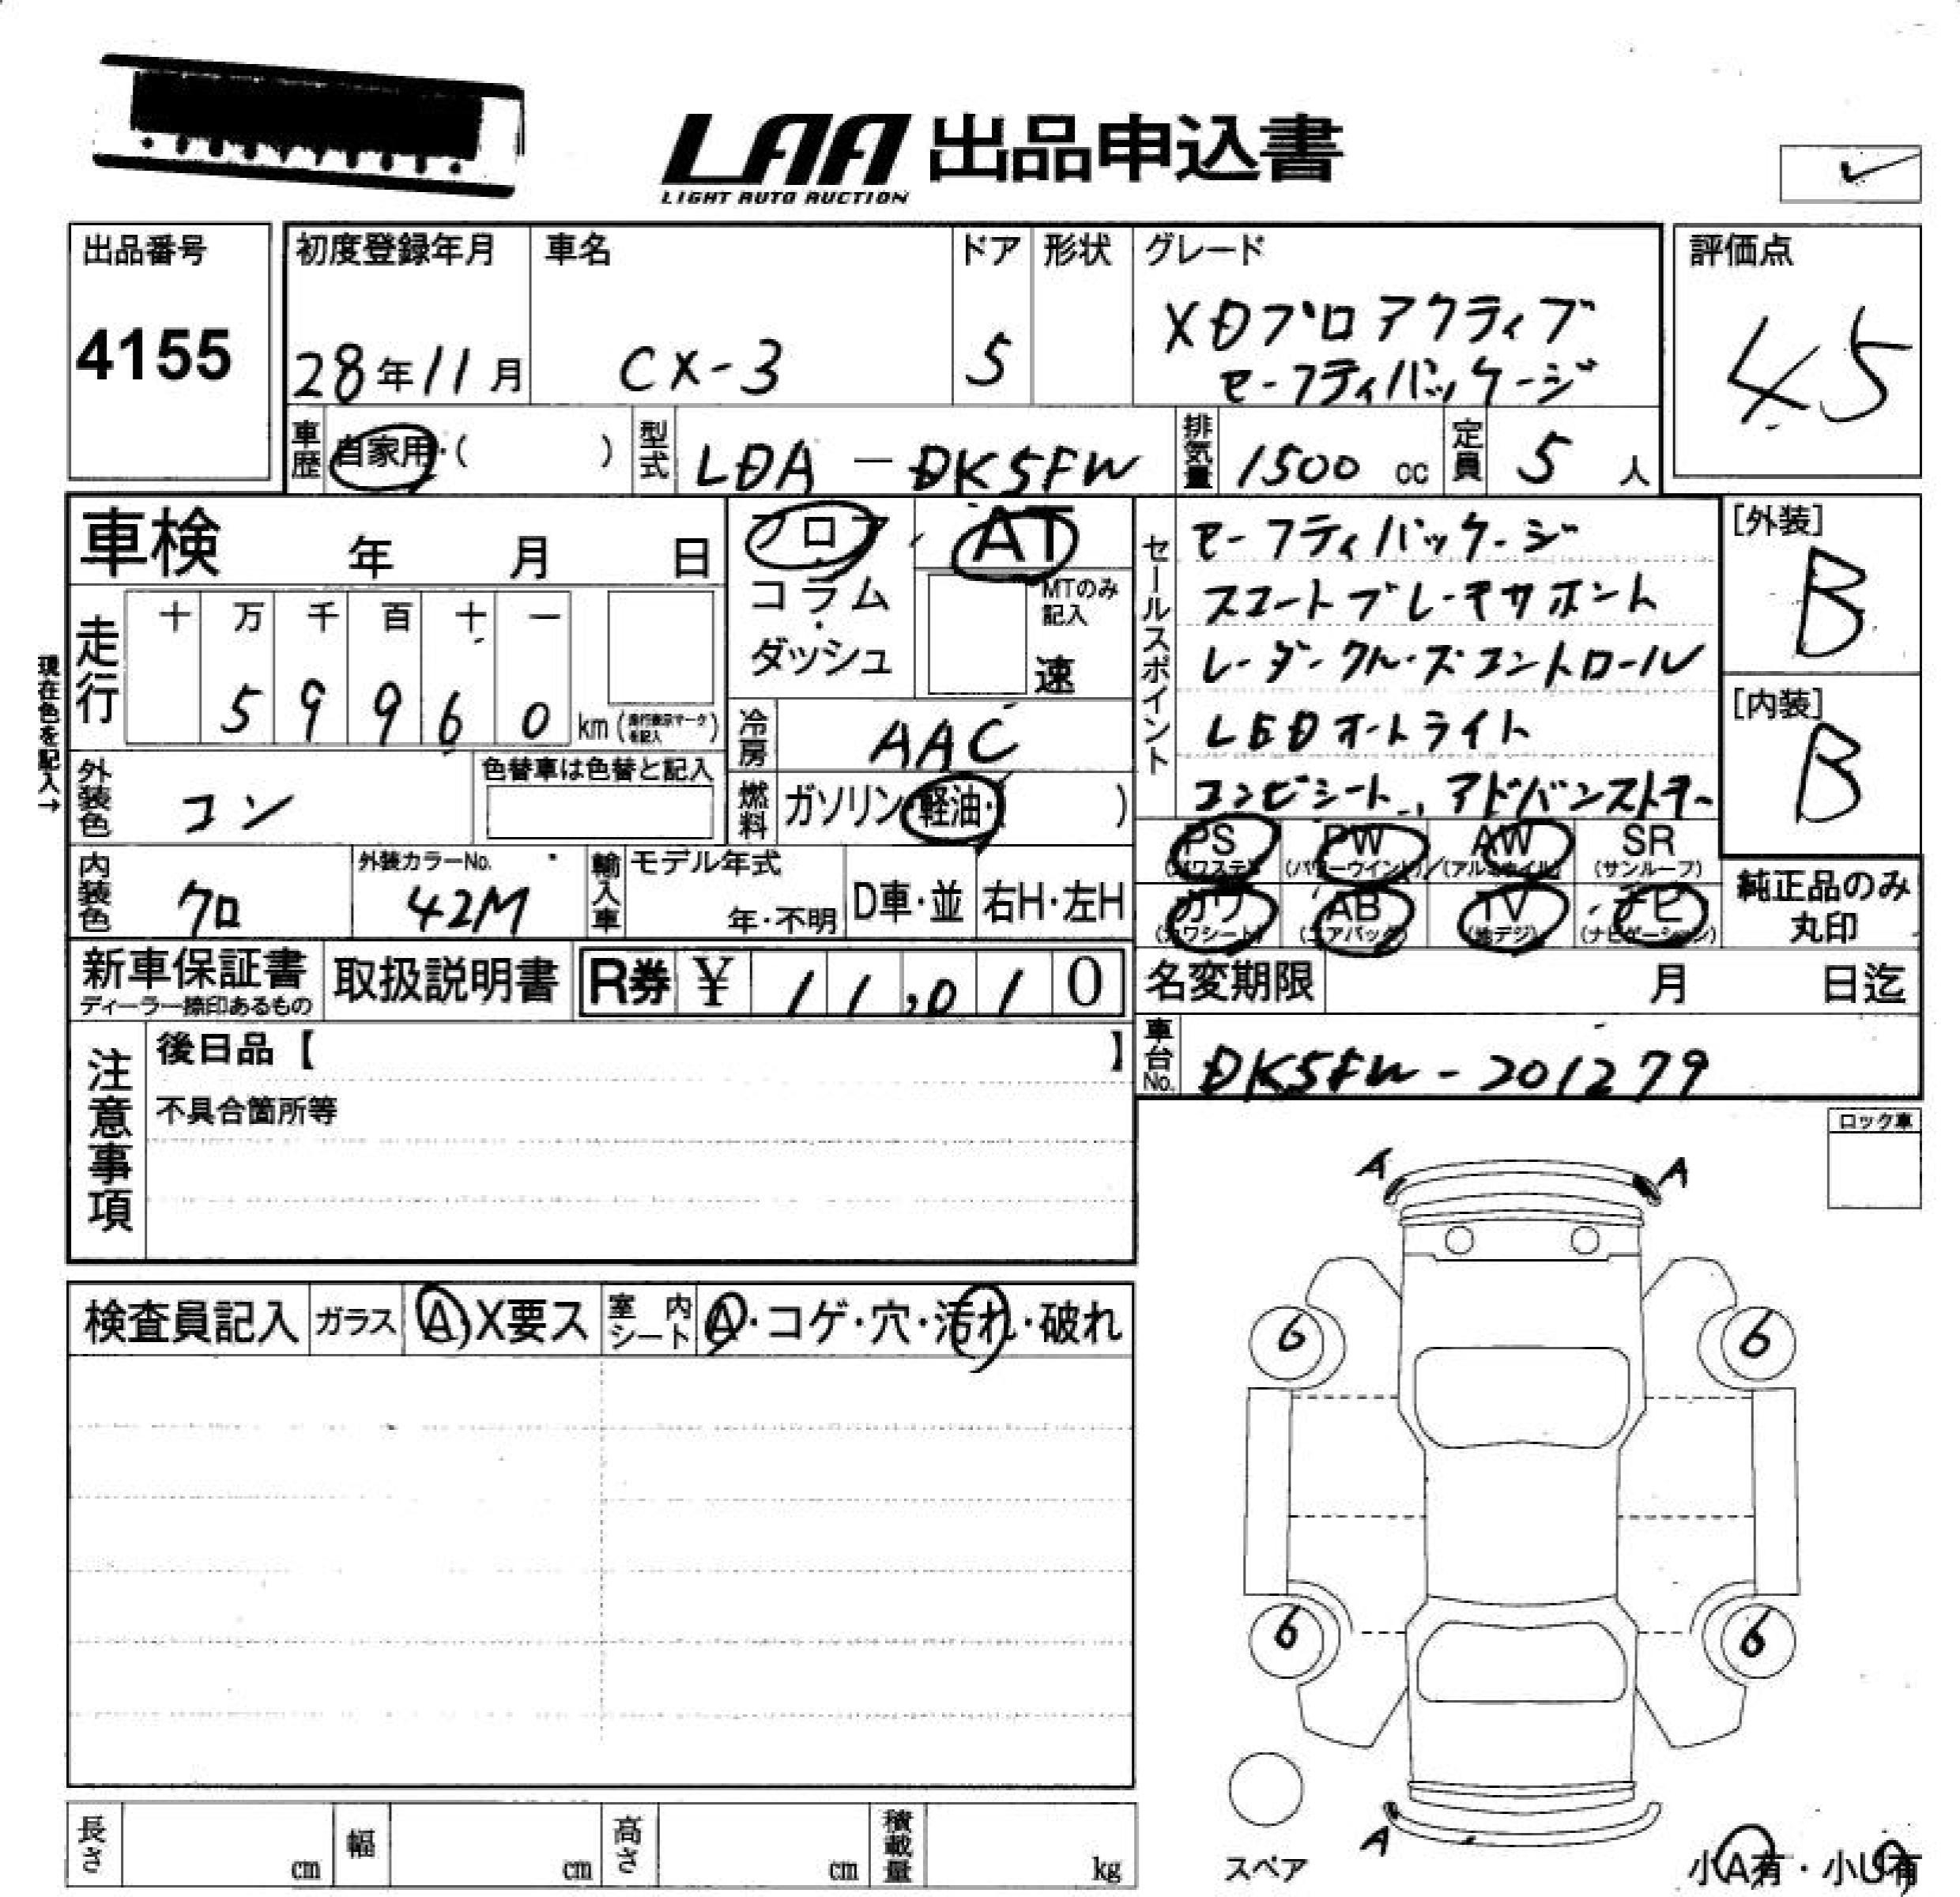 LAA 出品申込書
LIGHT AUTO AUCTION
出品番号
4155
初度登録年月
28年11月
車名
CX-3
ドア
5
形状
グレード
XDプロアクティブ
セーフティパッケージ
評価点
4.5
車歴
自家用・( )
型式
LDA-DK5FW
排気量
1500 cc
定員
5 人
車検 年 月 日
フロア
コラム
ダッシュ
AT
MTのみ
記入
速
走行
十 万 千 百 十 一
5 9 9 6 0 km
現在色を記入→
冷房
AAC
外装色
コン
色替車は色替と記入
燃料
ガソリン・軽油・( )
内装色
クロ
外装カラーNo.
42M
輸入車
モデル年式
年・不明
D車・並
右H・左H
新車保証書
取扱説明書
R券 ¥ 11,010
セールスポイント
セーフティパッケージ
スマートブレーキサポート
レーダークルーズコントロール
LEDオートライト
コンビシート、アドバンストキー
[外装]
B
[内装]
B
PS
(パワステ)
PW
(パワーウインド)
AW
(アルミホイル)
SR
(サンルーフ)
カワ
(カワシート)
AB
(エアバック)
TV
(地デジ)
ナビ
(ナビゲーション)
純正品のみ
丸印
名変期限 月 日迄
車台No.
DK5FW-201279
注意事項
後日品【 】
不具合箇所等
ロック車
検査員記入
ガラス
A X要ス
室内
シート
A・コゲ・穴・汚れ・破れ
A A
6 6
6 6
A
スペア
小A有・小U有
長さ cm
幅 cm
高さ cm
積載量 kg